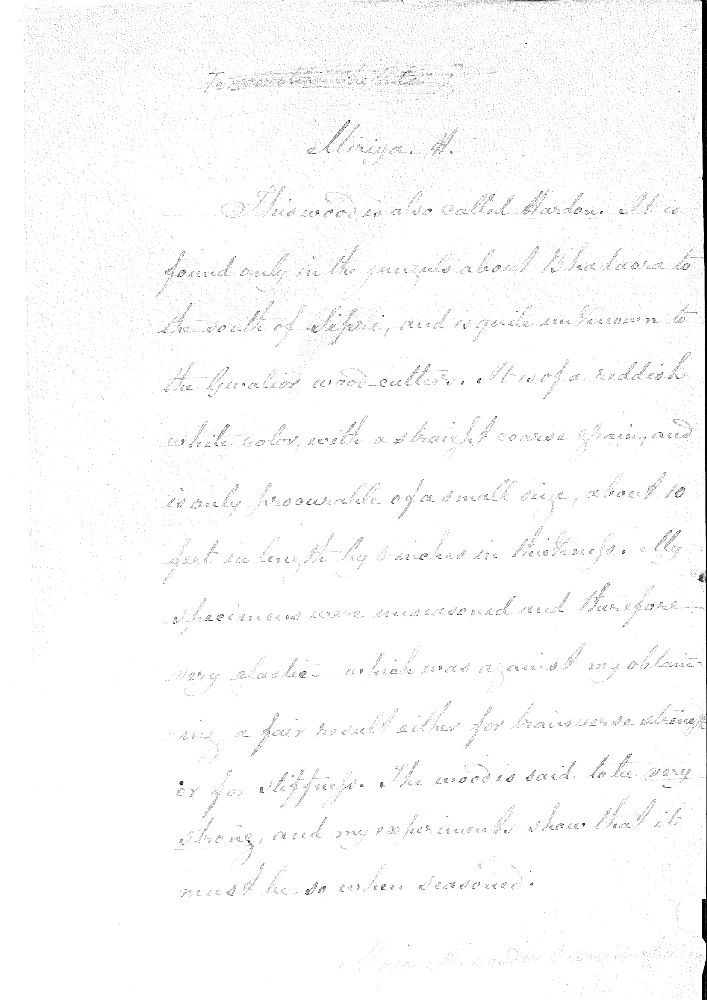 Miriya. H.
This wood is also called Hardon. It is
found only in the junguls about Bhadaora to
the south of Sipri, and is quite unknown to
the Gwalior wood-cutters. It is of a reddish
white color, with a straight coarse grain, and
is only procurable of a small size, about 10
feet in length by inches in thickness. My
specimens were unseasoned and therefore
very elastic which was against my obtain-
ing a fair result either for transverse strength
or for stiffness. The wood is said to be very
strong, and my experiments show that it
must be so when seasoned.